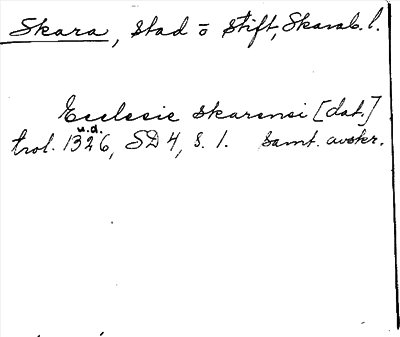 Skara, stad o stift, Skarab. l.
Ecclesie skarensi [dat.]
u.d.
trol. 1326, SD 4, s. 1. samt. avskr.